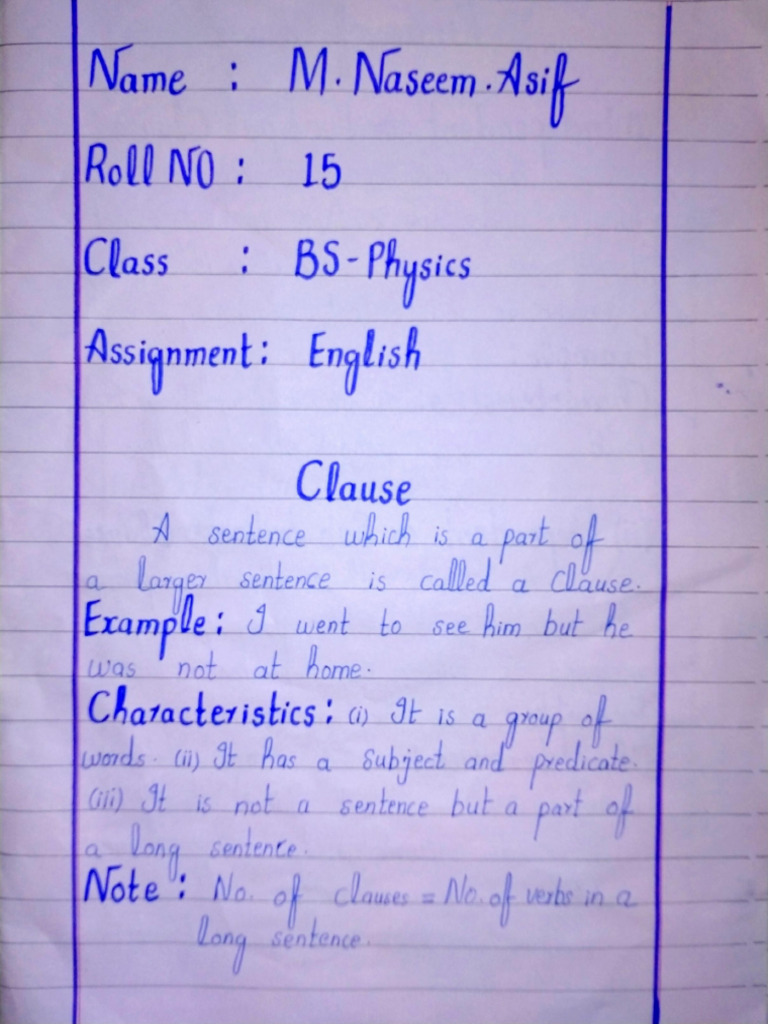 Name : M. Naseem. Asif
Roll NO : 15
Class : BS-Physics
Assignment: English
Clause
A sentence which is a part of
a larger sentence is called a Clause.
Example: I went to see him but he
was not at home.
Characteristics: (i) It is a group of
words. (ii) It has a Subject and predicate.
(iii) It is not a sentence but a part of
a long sentence.
Note: No. of clauses = No. of verbs in a
long sentence.